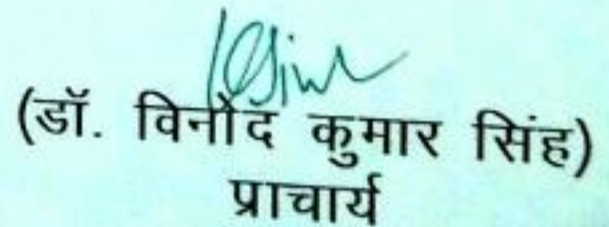 (डॉ. विनोद कुमार सिंह)
प्राचार्य